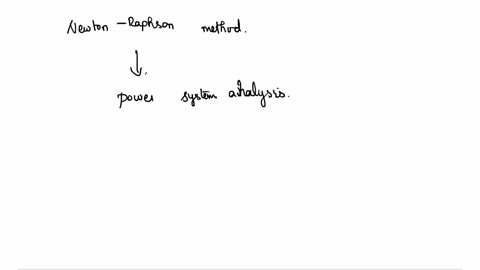 Newton - Raphson method.
power system analysis.